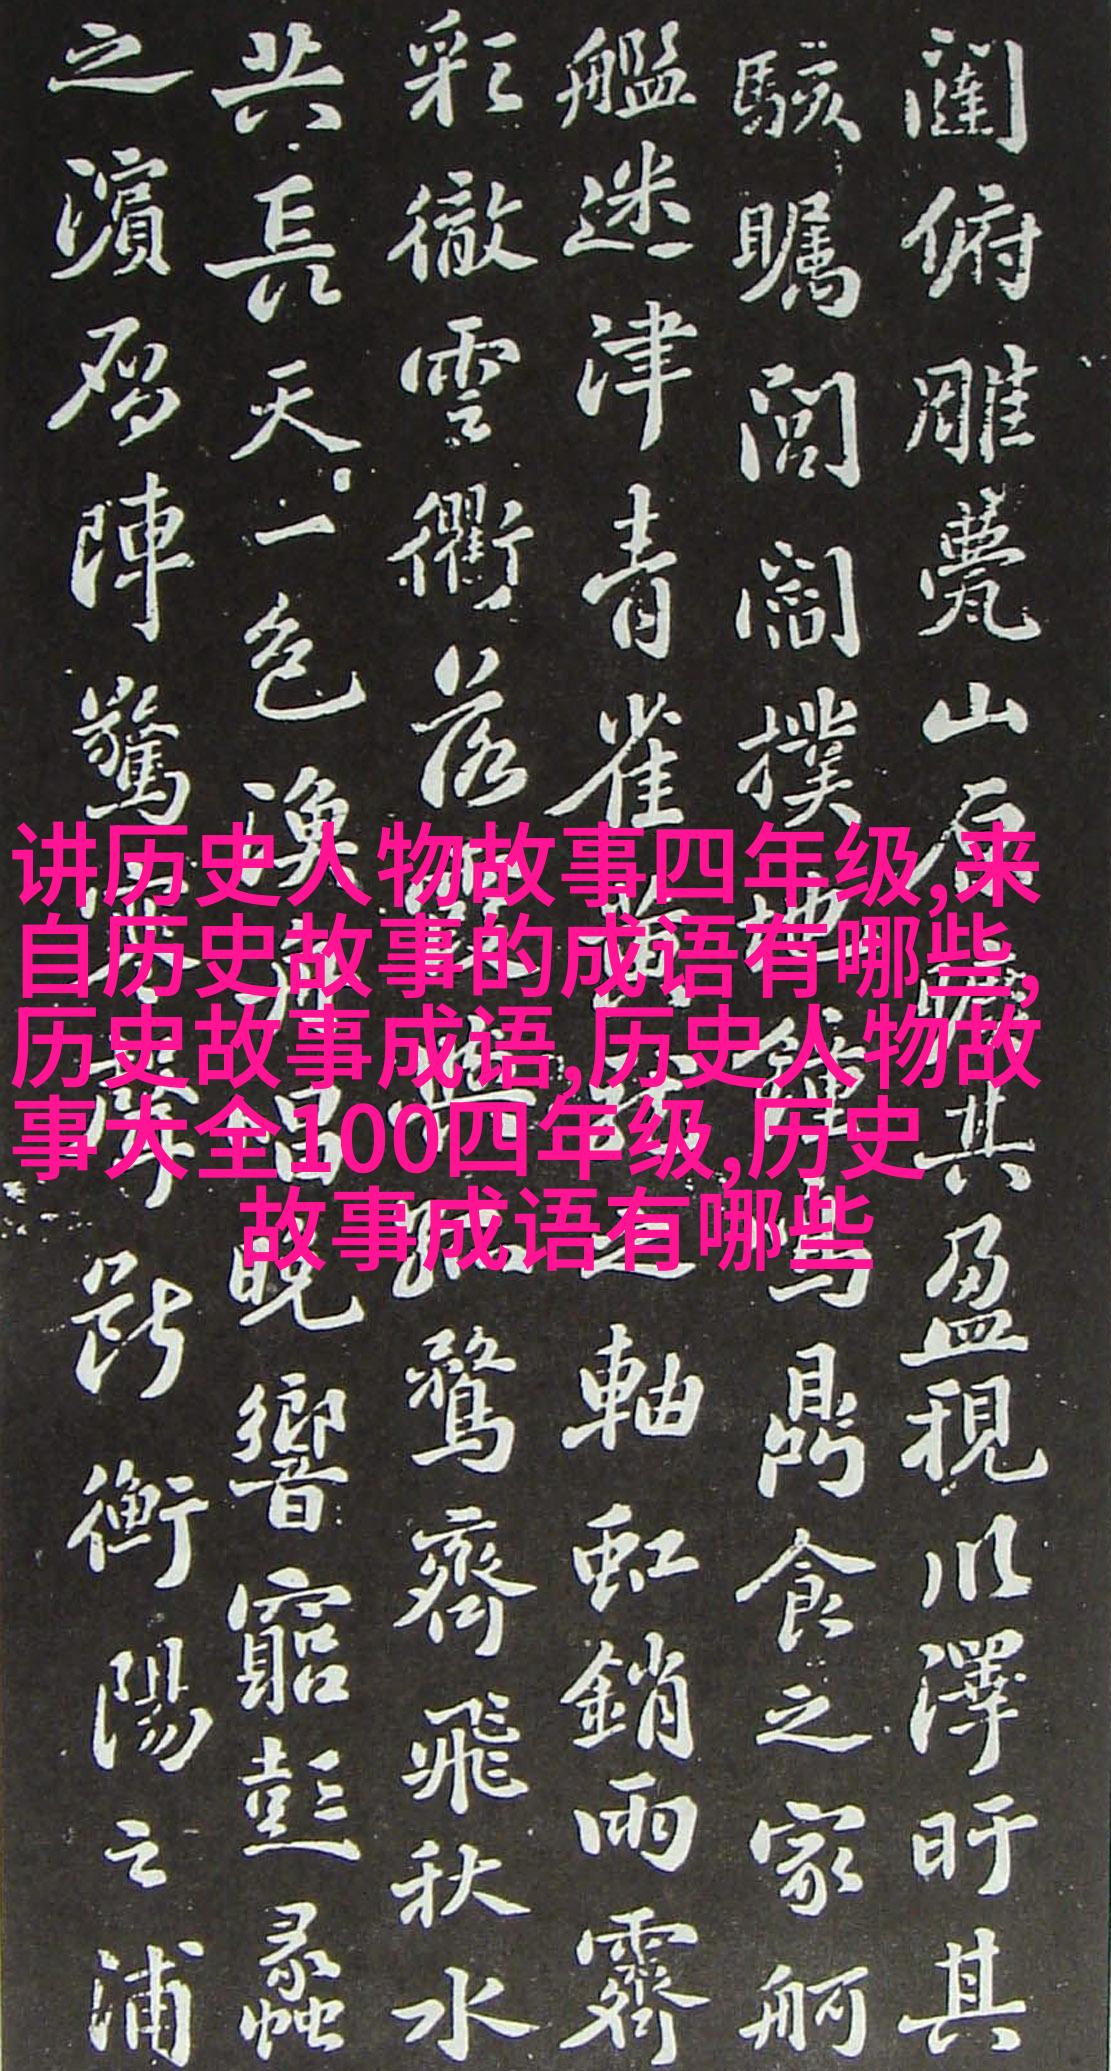 闥俯雕甍山原曠其盈視川澤盱其
駭矚閭閻撲地鍾鳴鼎食之家舸
艦迷津青雀黃龍之軸虹銷雨霽
彩徹雲衢落霞與孤鶩齊飛秋水
共長天一色漁舟唱晚響窮彭蠡
之濱鴈陣驚寒聲斷衡陽之浦
讲历史人物故事四年级,来
自历史故事的成语有哪些,
历史故事成语,历史人物故
事大全100四年级,历史
故事成语有哪些